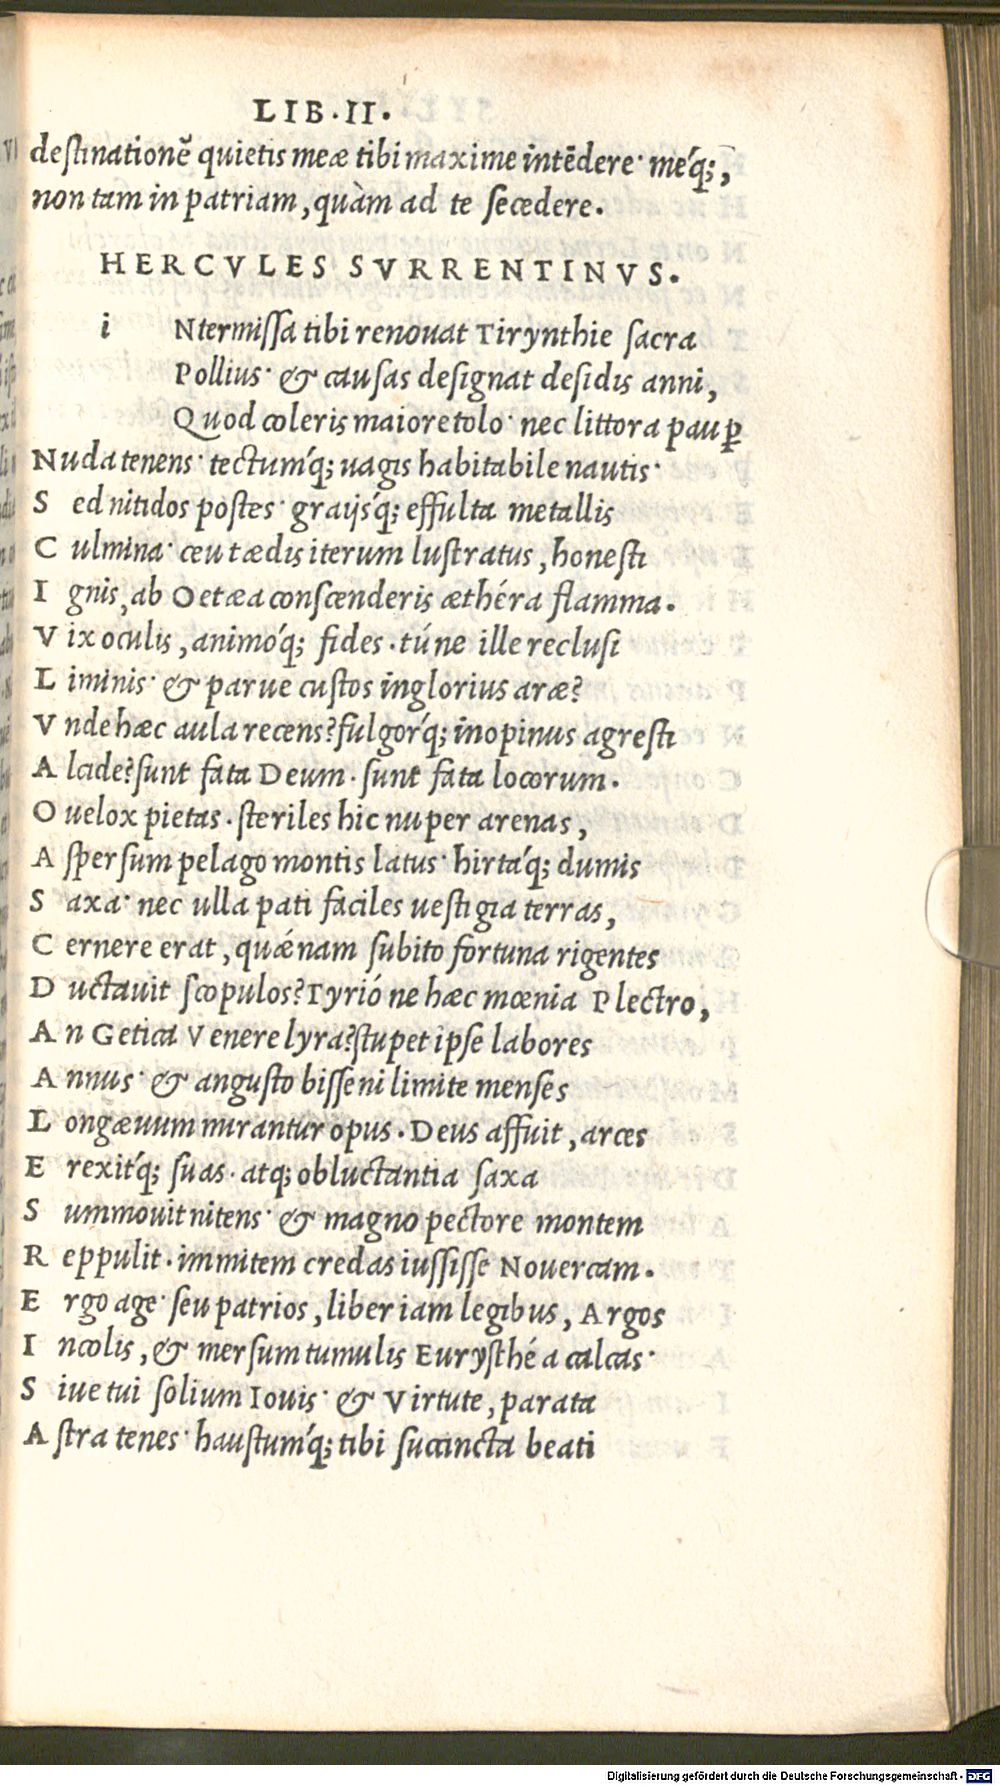 LIB·II.
destinationē quietis meæ tibi maxime intēdere· méq;,
non tam in patriam, quàm ad te secedere.
HERCVLES SVRRENTINVS.
i Ntermissa tibi renouat Tirynthie sacra
Pollius· & causas designat desidis anni,
Quod coleris maiore tolo· nec littora pauꝑ
Nuda tenens· tectumq́; uagis habitabile nautis·
S ed nitidos postes· graijsq́; effulta metallis
C ulmina· ceu tædis iterum lustratus, honesti
I gnis, ab Oetæa conscenderis æthéra flamma.
V ix oculis, animóq; fides. túne ille reclusi
L iminis· & paruæ custos inglorius aræ?
V nde hæc aula recens? fulgorq́; inopinus agresti
A lcidæ? sunt fata Deum. sunt fata locorum.
O uelox pietas. steriles hic nuper arenas,
A spersum pelago montis latus· hirtáq; dumis
S axa· nec ulla pati faciles uestigia terras,
C ernere erat, quǽnam subito fortuna rigentes
D uctauit scopulos? Tyrió ne hæc mœnia Plectro,
A n Getica Venere lyra? stupet ipse labores
A nnus· & angusto bisseni limite menses
L ongæuum mirantur opus. Deus affuit, arces
E rexitq́; suas· atq; obluctantia saxa
S ummouit nitens· & magno pectore montem
R eppulit. immitem credas iussisse Nouercam.
E rgo age· seu patrios, liber iam legibus, Argos
I ncolis, & mersum tumulis Eurysthéa calcas·
S iue tui solium Iouis· & Virtute, parata
A stra tenes· haustumq́; tibi succincta beati
Digitalisierung gefördert durch die Deutsche Forschungsgemeinschaft - DFG